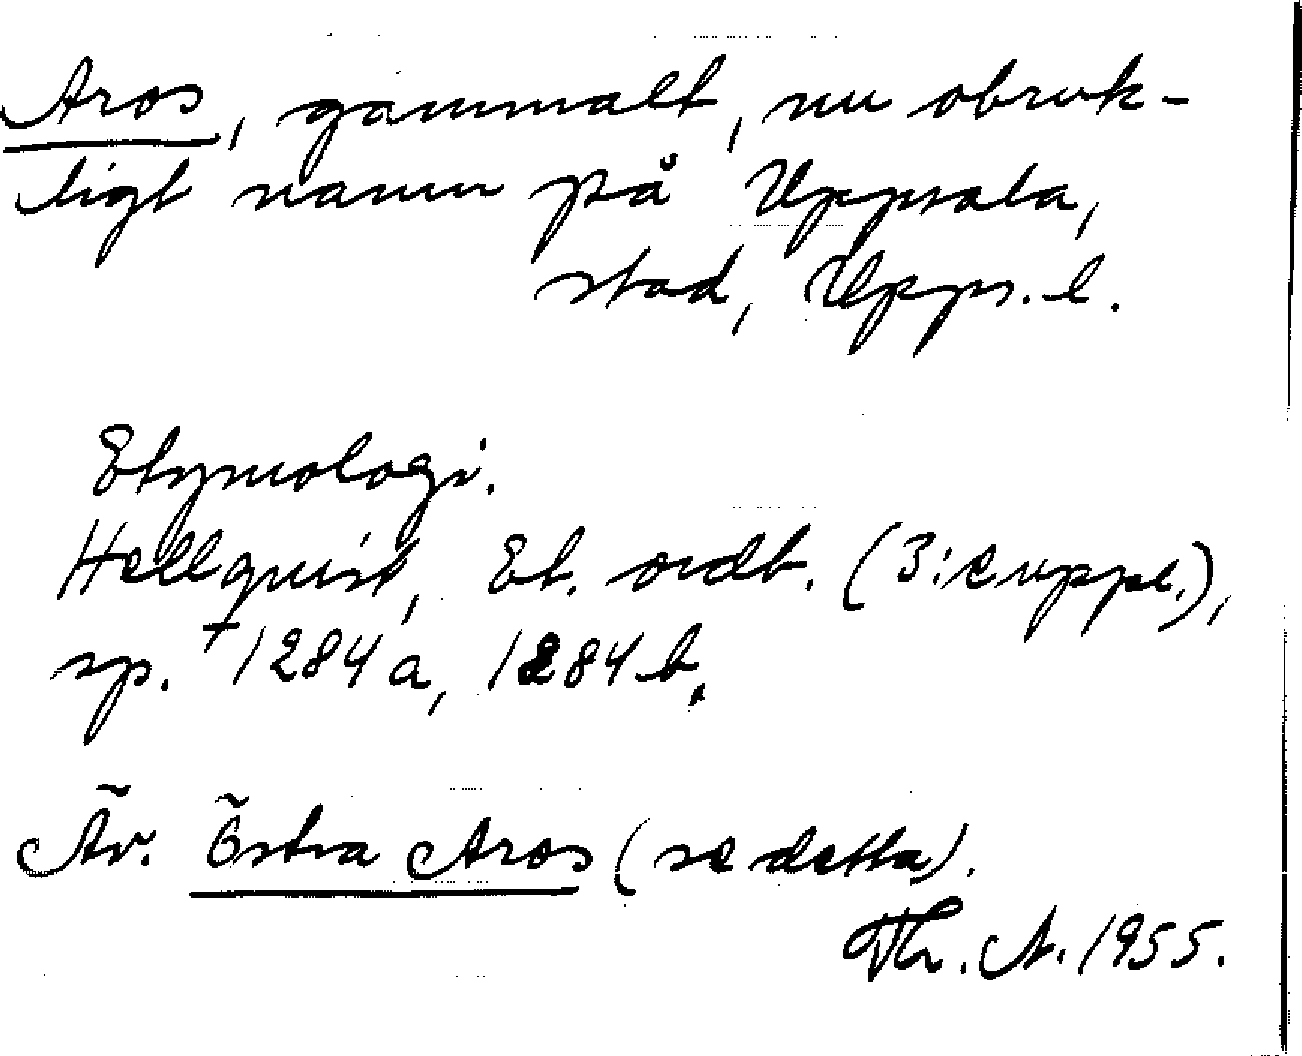 Aros, gammalt, nu obruk-
ligt namn på Uppsala,
stad, Upps. l.
Etymologi.
Hellquist, Et. ordb. (3:e uppl.),
sp. †1284 a, 1284 b.
Äv. Östra Aros (se detta).
Th. A. 1955.